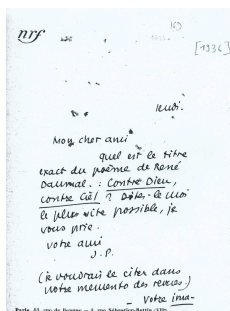 nrf
[1936]
Jeudi.
Mon cher ami
quel est le titre
exact du poème de René
Daumal. : Contre Dieu,
contre Ciel ? Dites-le moi
le plus vite possible, je
vous prie.
votre ami
J.P.
(je voudrais le citer dans
notre memento des revues.)
– votre ima-
Paris, 43, rue de Beaune — 5, rue Sébastien-Bottin (VIIe)